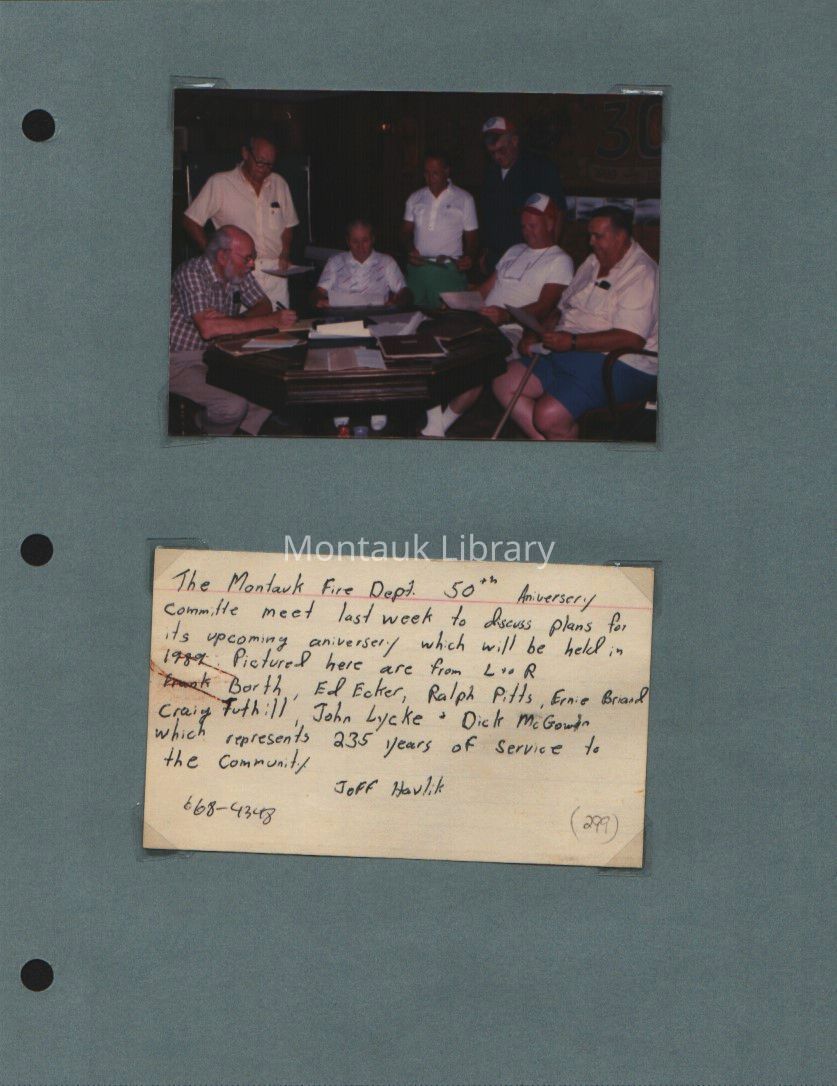 30
Montauk Library
The Montauk Fire Dept. 50th Aniversery
Committe meet last week to discuss plans for
its upcoming aniversery which will be held in
1989. Pictured here are from L to R
Frank Borth, Ed Ecker, Ralph Pitts, Ernie Briand
Craig Tuthill, John Lycke + Dick McGowin
which represents 235 years of service to
the Community
Joff Havlik
668-4348
(299)